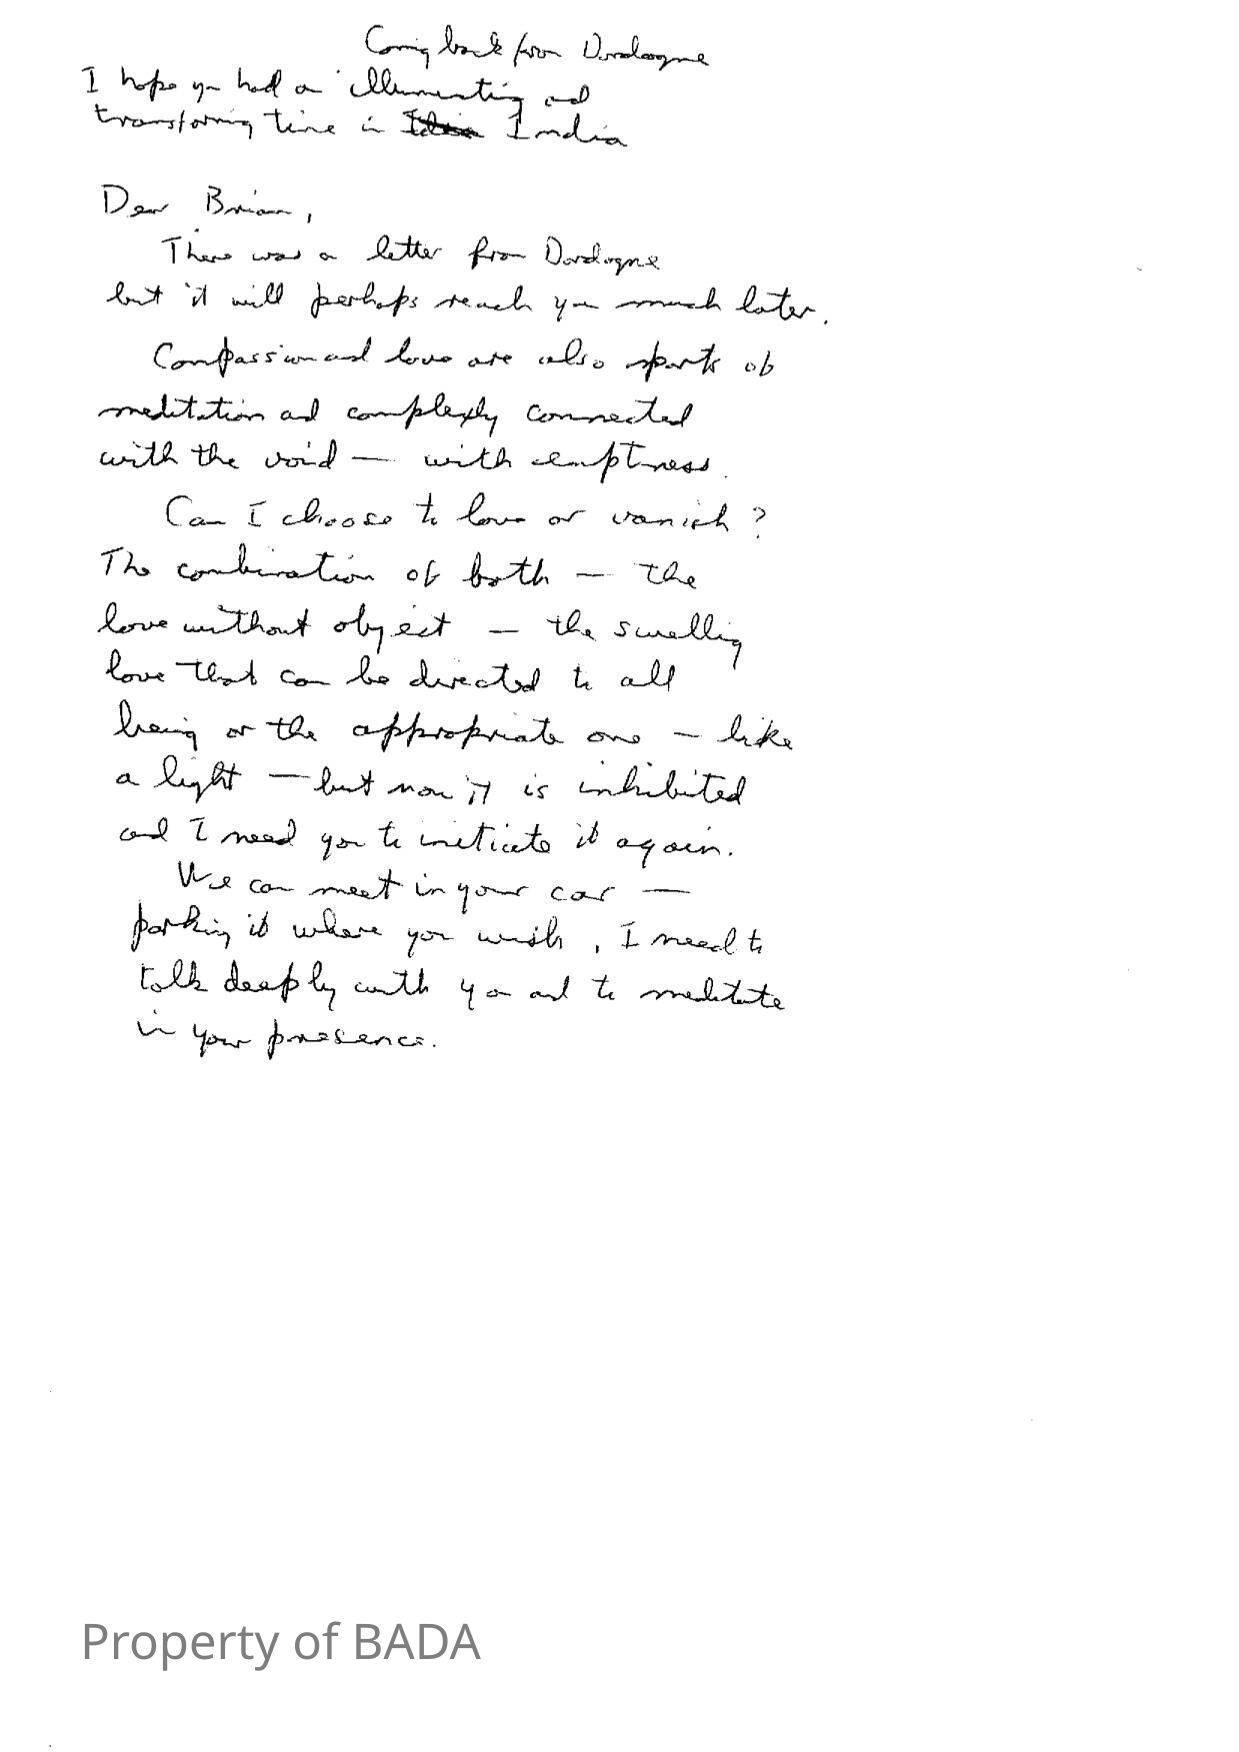 Coming back from Dordogne
I hope you had a illuminating and
transforming time in India
Dear Brian,
There was a letter from Dordogne
but it will perhaps reach you much later.
Compassion and love are also sparks of
meditation and complexly connected
with the void — with emptness.
Can I choose to love or vanish?
The combination of both — the
love without object — the swelling
love that can be directed to all
being or the appropriate one — like
a light — but now it is inhibited
and I need you to initiate it again.
We can meet in your car —
parking it where you wish, I need to
talk deeply with you and to meditate
in your presence.
Property of BADA